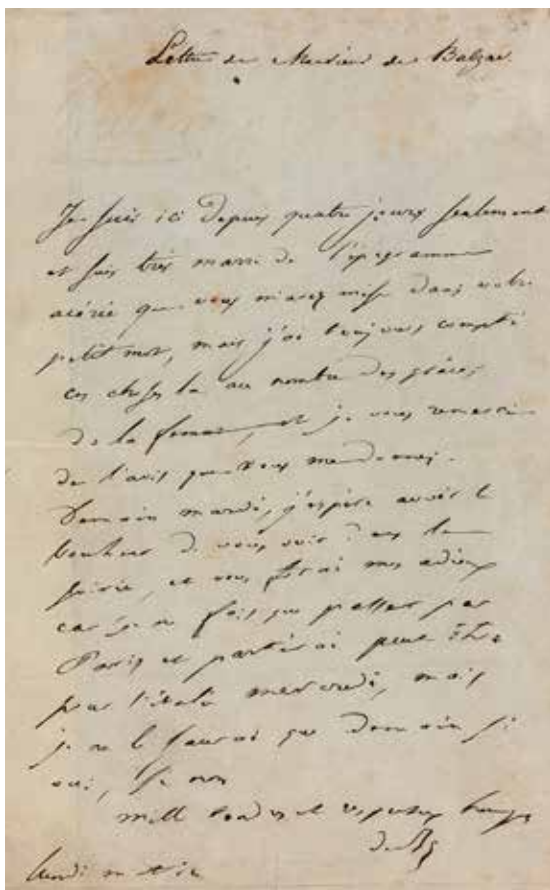 Lettre de Monsieur de Balzac
Je suis ici depuis quatre jours seulement
et suis très marri de l'épigramme
acérée que vous m'avez mise dans votre
petit mot, mais j'ai toujours compté
ces choses là au nombre des grâces
de la femme, et je vous remercie
de l'avis que vous me donnez.
Demain mardi, j'espère avoir le
bonheur de vous voir dans la
soirée, et vous ferai mes adieux
car je ne fais que passer par
Paris et partirai peut être
pour l'italie mercredi, mais
je ne le saurai que demain si
oui, si non
mille tendres et respectueux hommages
de Bc
lundi matin